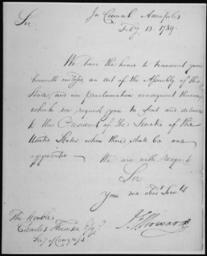 In Council Annapolis
Feby 13. 1789.
Sir
We have the honor to transmit you
herewith an act of the Assembly of this
State, and our proclamation
which we request you to and deliver
to the President of the Senate of the
United States when there shall be one
appointed
We are with
Sir
Your
The Honble
Charles Thomson Esqr
J E Howard